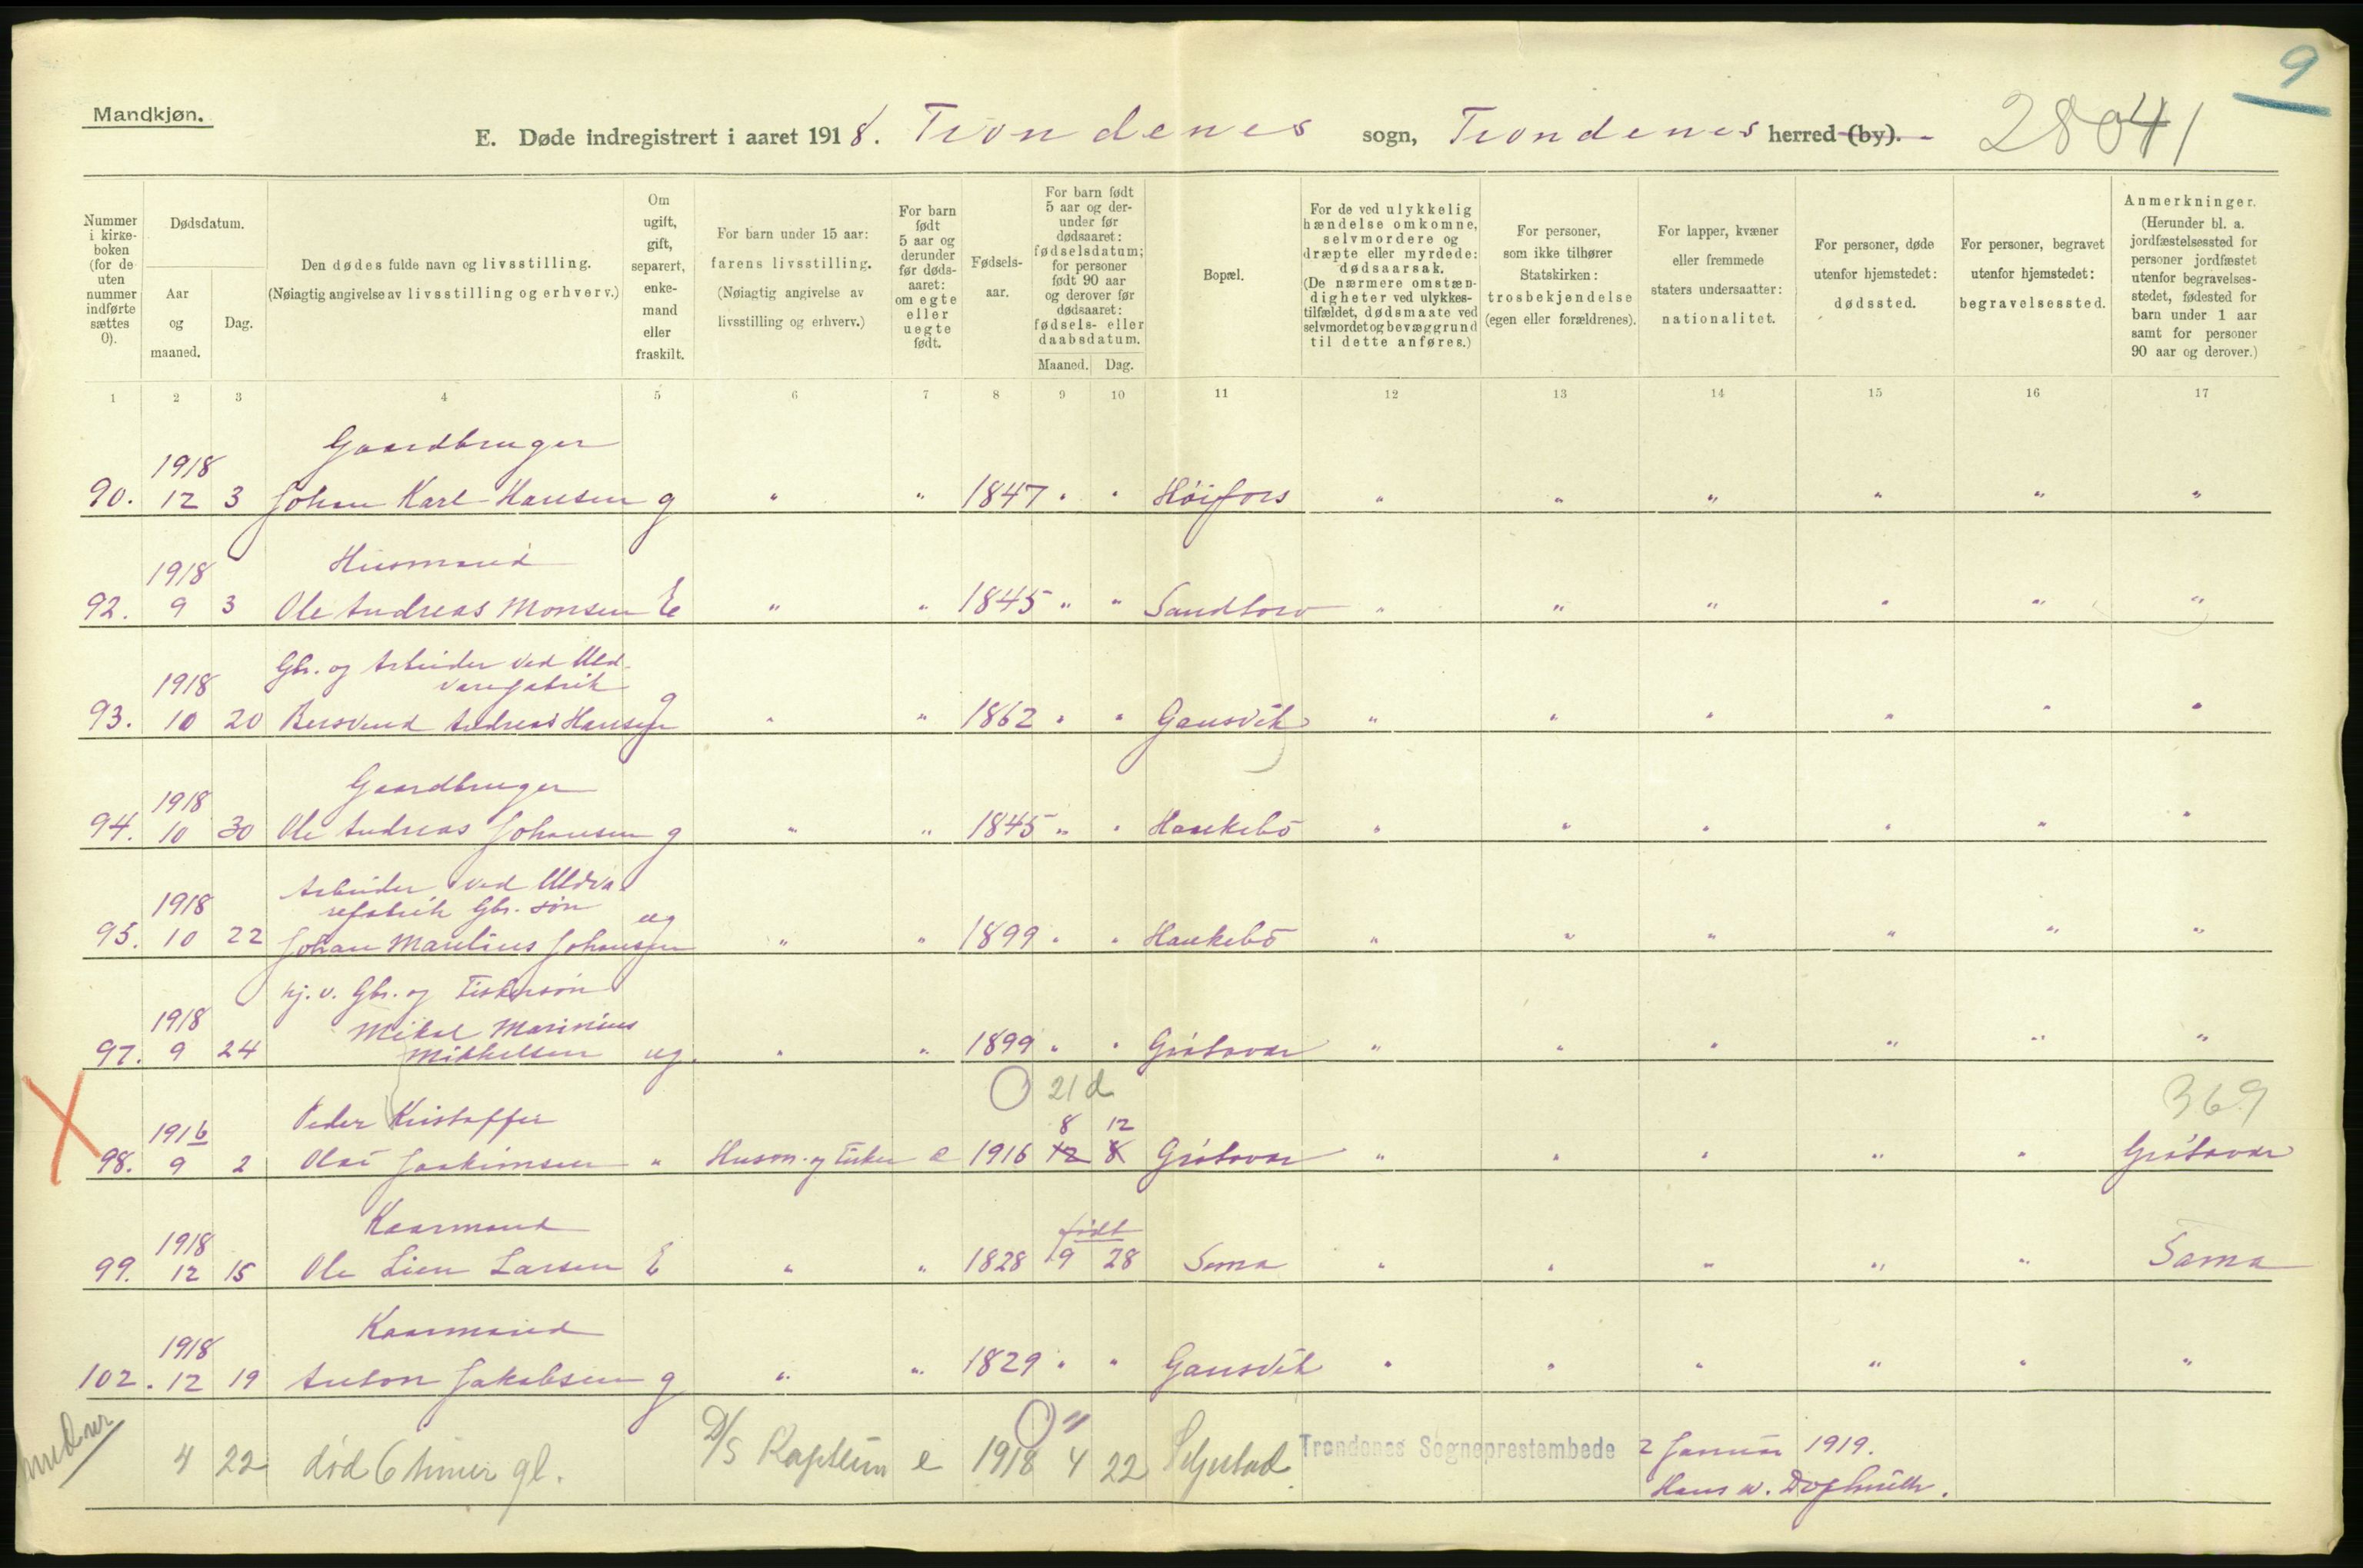 9
Mandkjøn.
E. Døde indregistrert i aaret 1918. Trondenes sogn, Trondenes herred (by). 28041
Nummer i kirkeboken (for de uten nummer indførte sættes 0).
Dødsdatum.
Aar og maaned.
Dag.
Den dødes fulde navn og livsstilling.
(Nøiagtig angivelse av livsstilling og erhverv.)
Om ugift, gift, separert, enkemand eller fraskilt.
For barn under 15 aar:
farens livsstilling.
(Nøiagtig angivelse av livsstilling og erhverv.)
For barn født 5 aar og derunder før dødsaaret: om egte eller uegte født.
Fødselsaar.
For barn født 5 aar og derunder før dødsaaret: fødselsdatum; for personer født 90 aar og derover før dødsaaret: fødsels- eller daabsdatum.
Maaned. Dag.
Bopæl.
For de ved ulykkelig hændelse omkomne, selvmordere og dræpte eller myrdede: dødsaarsak.
(De nærmere omstændigheter ved ulykkestilfældet, dødsmaate ved selvmordet og bevæggrund til dette anføres.)
For personer, som ikke tilhører Statskirken: trosbekjendelse (egen eller forældrenes).
For lapper, kvæner eller fremmede staters undersaatter: nationalitet.
For personer, døde utenfor hjemstedet: dødssted.
For personer, begravet utenfor hjemstedet: begravelsessted.
Anmerkninger.
(Herunder bl. a. jordfæstelsessted for personer jordfæstet utenfor begravelsesstedet, fødested for barn under 1 aar samt for personer 90 aar og derover.)
1 2 3 4 5 6 7 8 9 10 11 12 13 14 15 16 17
1918 Gaardbruger
90. 12 3 Johan Karl Hansen g " " 1847 " " Høifors " " " " " "
1918 Husmand
92. 9 3 Ole Andreas Monsen E " " 1845 " " Sandtorv " " " " " "
Gbr. og Arbeider ved Uld-
1918 varefabrik
93. 10 20 Bersvend Andreas Hansen g " " 1862 " " Gausvik " " " " " "
1918 Gaardbruger
94. 10 30 Ole Andreas Johansen g " " 1845 " " Haukebø " " " " " "
Arbeider ved Uldva-
1918 refabrik Gbr. søn
95. 10 22 Johan Marelius Johansen ug " " 1899 " " Haukebø " " " " " "
hj. v. Gbr. og Fiskersøn
1918 Mikal Marinius
97. 9 24 Mikkelsen ug. " " 1899 " " Grøtavær " " " " " "
21 d 369
1916 Peder Kristoffer 8 12
98. 9 2 Olai Joakimsen " Husm. og Fisker e 1916 12 8 Grøtavær " " " " " Grøtavær
1918 Kaarmand født
99. 12 15 Ole Lien Larsen E " " 1828 9 28 Sama " " " " " Sama
1918 Kaarmand
102. 12 19 Anton Jakobsen g " " 1829 " " Gausvik " " " " " "
4 22 død 6 timer gl. D/S Kaptein e 1918 4 22 Seljestad
Trondenes Sogneprestembede 2 Januar 1919.
Hans W.